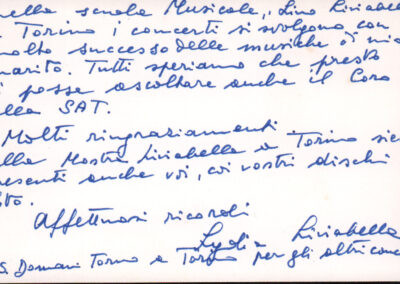 nella scuola Musicale „Lino Liviabella
Torino i concerti si svolgono con
molto successo delle musiche di mio
marito. Tutti speriamo che presto
si possa ascoltare anche il Coro
della SAT.
Molti ringraziamenti
alla Mostra Liviabella a Torino sie
presenti anche voi, coi vostri dischi
Affettuosi ricordi
Lydia Liviabella
S. Domani Torno a Torino per gli altri conc